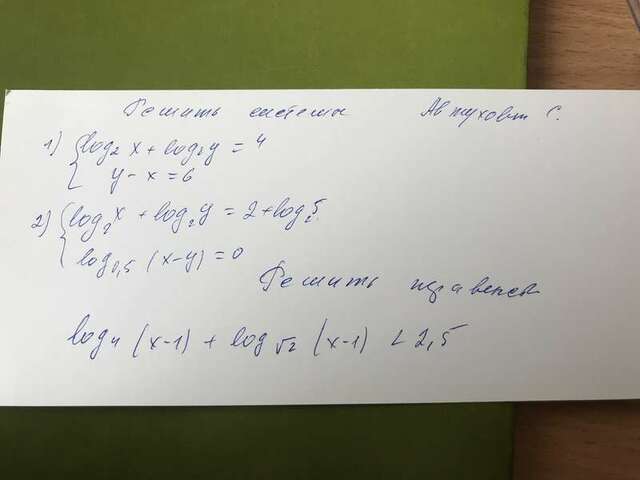 Решить системы
1) { log₂ x + log₂ y = 4
y - x = 6
2) { log₂ x + log₂ y = 2 + log₂ 5
log₀,₅ (x-y) = 0
Решить неравенст
log₄ (x-1) + log √2 (x-1) < 2,5